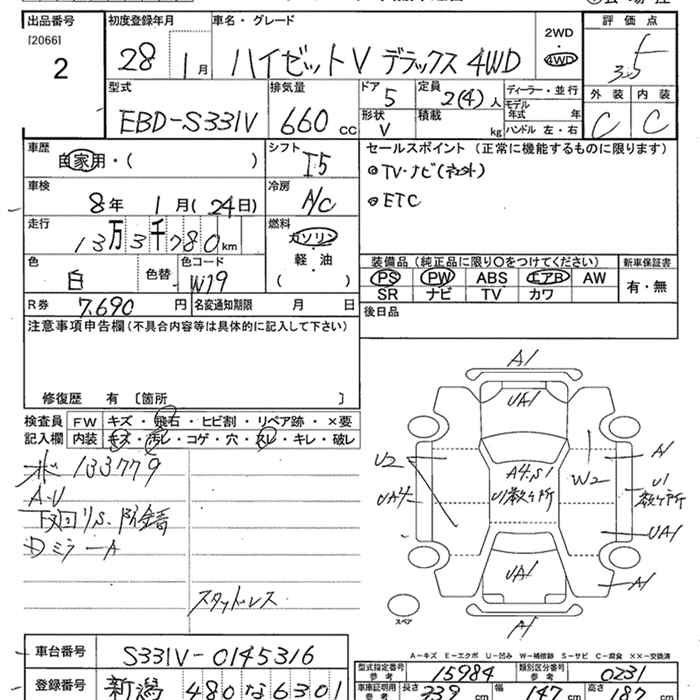 出品番号 初度登録年月 車名・グレード 2WD 評価点
[2066] 2 28 1月 ハイゼットV デラックス 4WD 4WD 3.5
型式 排気量 ドア 定員 ディーラー・並行 外装 内装
EBD-S331V 660cc 5 2(4)人 モデル年式 年 C C
形状 V 積載 kg ハンドル 左・右
車歴 シフト セールスポイント(正常に機能するものに限ります)
自家用・( ) I5 ●TV・ナビ(社外)
車検 冷房 ●ETC
8年 1月(24日) A/C
走行 燃料
13万3千780km ガソリン
色 色替 色コード 軽・油 装備品(純正品に限り○をつけてください) 新車保証書
白 W19 ( ) PS PW ABS エアB AW 有・無
SR ナビ TV カワ
R券 7,690円 名変通知期限 月 日 後日品
注意事項申告欄(不具合内容等は具体的に記入して下さい)
修復歴 有〔箇所 〕
検査員 FW キズ・飛石・ヒビ割・リペア跡・×要
記入欄 内装 キズ・汚レ・コゲ・穴・スレ・キレ・破レ
133779
A・U
下回りS.防錆
Dミラ-A
スタッドレス
A1
UA1
U2 A1
A4.S1 W2 U1
UA4 U1数ヶ所 数ヶ所
UA1
UA1 A1
スペア A1
A-キズ E-エクボ U-凹み W-補修跡 S-サビ C-腐食 XX-交換済
車台番号 S331V-0145316 型式指定番号 参考 15984 類別区分番号 参考 0231
登録番号 新潟 480 な 6301 車庫証明用 参考 長さ 339cm 幅 147cm 高さ 187cm